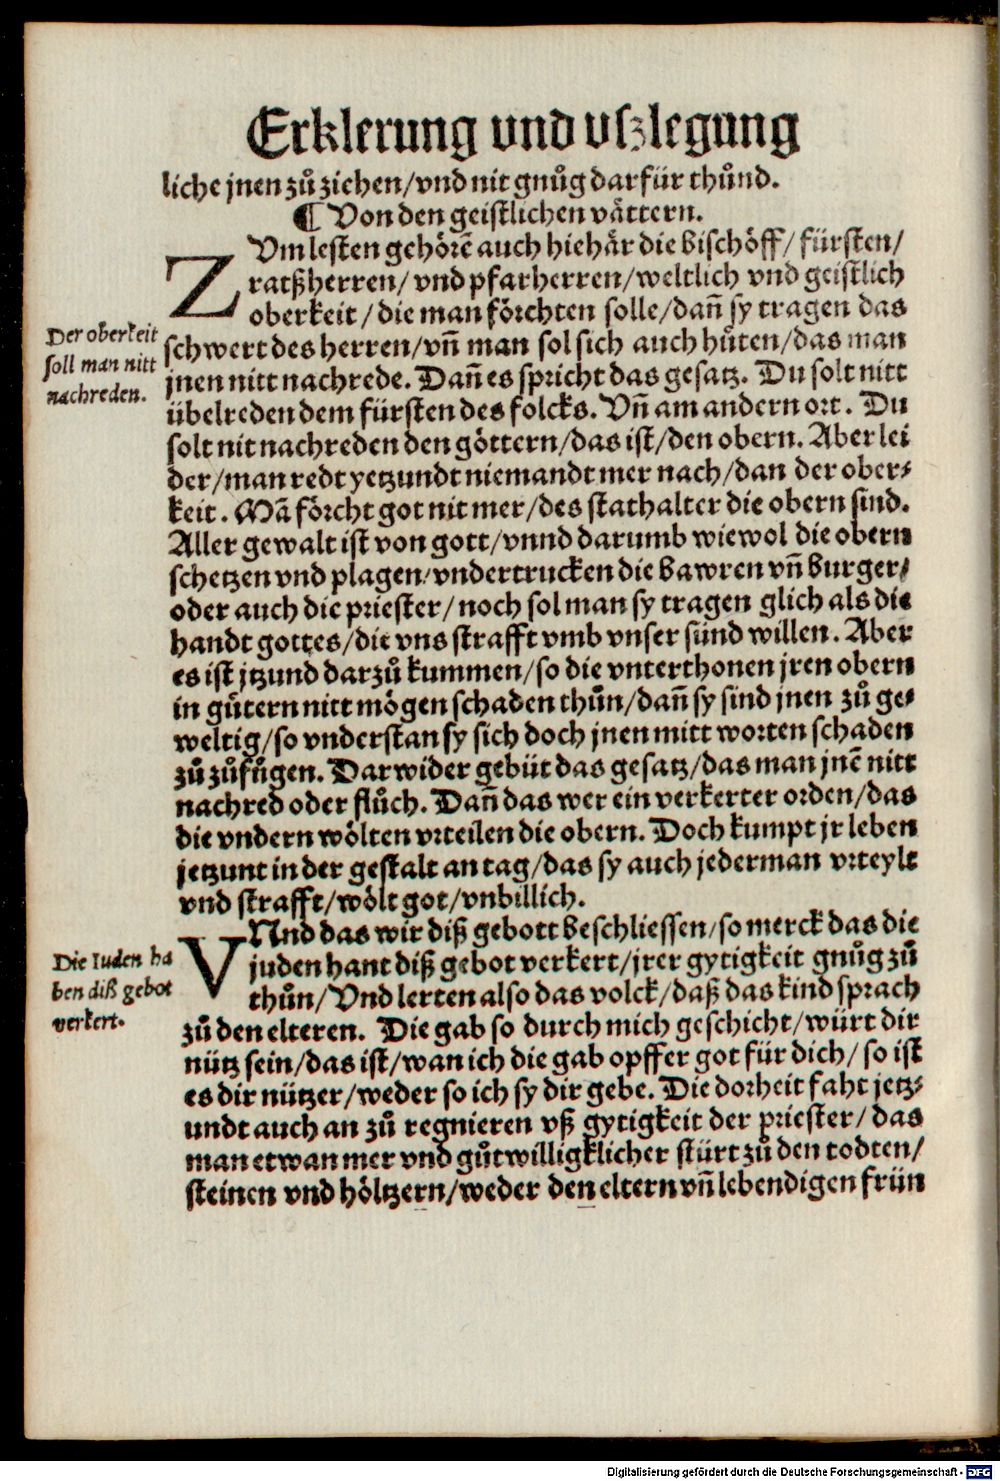 Erklerung vnd vſzlegung
liche jnen zů ziehen/vnd nit gnůg darfür thůnd.
¶ Von den geiſtlichen vättern.
ZVm leſten gehörē auch hiehär die biſchöff/ fürſten/
ratßherren/ vnd pfarherren/weltlich vnd geiſtlich
oberkeit/die man förchten ſolle/dañ ſy tragen das
Der oberkeit
ſoll man nitt
nachreden.
ſchwert des herren/vñ man ſol ſich auch hüten/das man
jnen nitt nachrede. Dañ es ſpricht das geſatz. Du ſolt nitt
übelreden dem fürſten des folcks. Vñ am andern ort. Du
ſolt nit nachreden den göttern/das iſt/den obern. Aber lei
der/man redt yetzundt niemandt mer nach/dan der ober⸗
keit. Mā förcht got nit mer/des ſtathalter die obern ſind.
Aller gewalt iſt von gott/vnnd darumb wiewol die obern
ſchetzen vnd plagen/vndertrucken die bawren vñ burger/
oder auch die prieſter/noch ſol man ſy tragen glich als die
handt gottes/die vns ſtrafft vmb vnſer ſünd willen. Aber
es iſt jtzund darzů kummen/ſo die vnterthonen jren obern
in gütern nitt mögen ſchaden thůn/dañ ſy ſind jnen zů ge⸗
weltig/ſo vnderſtan ſy ſich doch jnen mitt worten ſchaden
zů zůfügen. Darwider gebüt das geſatz/das man jnē nitt
nachred oder flůch. Dañ das wer ein verkerter orden/das
die vndern wölten vrteilen die obern. Doch kumpt jr leben
jetzunt in der geſtalt an tag/das ſy auch jederman vrteylt
vnd ſtrafft/wölt got/vnbillich.
VNnd das wir diß gebott beſchlieſſen/ſo merck das die
juden hant diß gebot verkert/jrer gytigkeit gnůg zů
thůn/Vnd lerten alſo das volck/daß das kind ſprach
Die Iuden ha
ben diß gebot
verkert.
zů den elteren. Die gab ſo durch mich geſchicht/würt dir
nütz ſein/das iſt/wan ich die gab opffer got für dich/ ſo iſt
es dir nützer/weder ſo ich ſy dir gebe. Die dorheit faht jetz⸗
undt auch an zů regnieren vß gytigkeit der prieſter/das
man etwan mer vnd gůtwilligklicher ſtürt zů den todten/
ſteinen vnd höltzern/weder den eltern vñ lebendigen frün
Digitalisierung gefördert durch die Deutsche Forschungsgemeinschaft - DFG